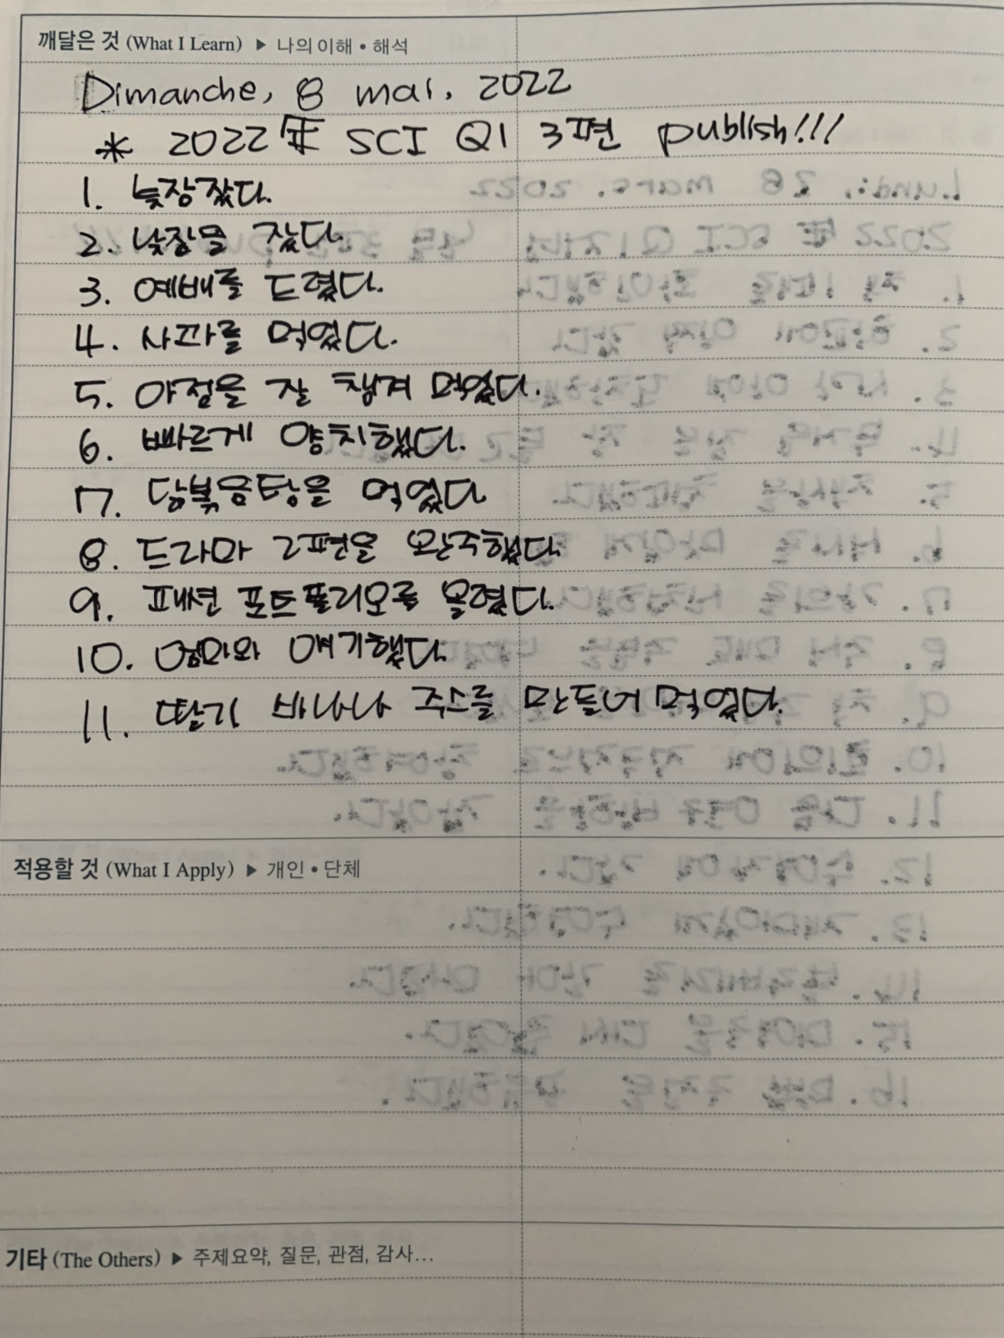 깨달은 것 (What I Learn) ▶ 나의 이해 • 해석
Dimanche, 8 mai, 2022
* 2022年 SCI Q1 3편 publish!!!
1. 늦장잤다.
2. 낮잠을 잤다.
3. 예배를 드렸다.
4. 사과를 먹었다.
5. 아점을 잘 챙겨 먹었다.
6. 빠르게 양치했다.
7. 닭볶음탕을 먹었다
8. 드라마 2편을 완주했다.
9. 패션 포트폴리오를 올렸다.
10. 엄마와 얘기했다.
11. 딸기 바나나 주스를 만들어 먹었다.
적용할 것 (What I Apply) ▶ 개인 • 단체
기타 (The Others) ▶ 주제요약, 질문, 관점, 감사…